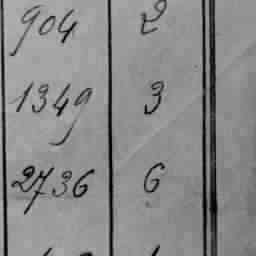 904 2
1349 3
2736 6